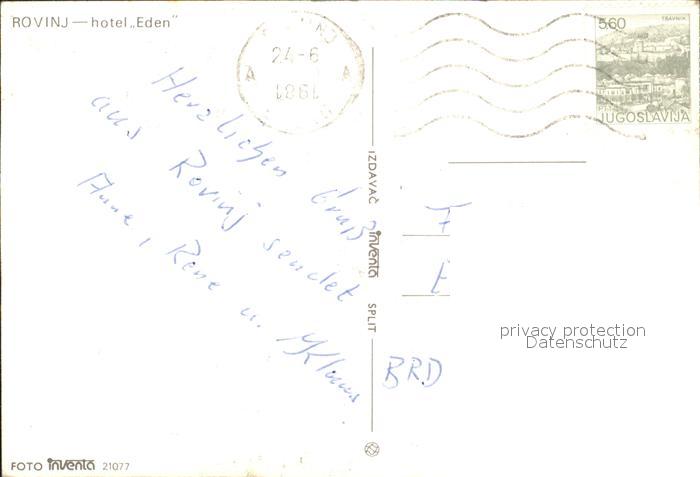 ROVINJ — hotel „Eden"
24-6
1981
A A
5,60
TRAVNIK
JUGOSLAVIJA
Herzlichen Gruß
aus Rovinj sendet
Anne, Rene u. Klaus
IZDAVAČ inventa SPLIT
BRD
privacy protection
Datenschutz
FOTO inventa 21077